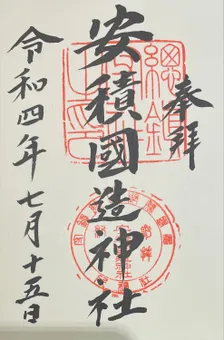 奉拜
安積國造神社
令和四年七月十五日